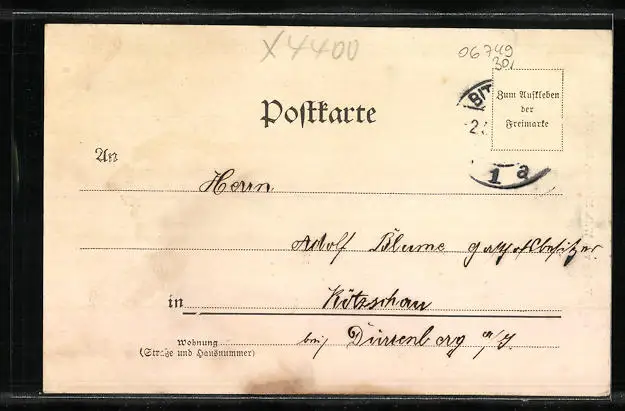 X4400
06749
30,
BIT
2.
Zum Aufkleben
der
Freimarke
1 a
Postkarte
An
Herrn
Adolf Blume
in Kötzschau
Wohnung
(Straße und Hausnummer)
bei Dürrenberg a/S.